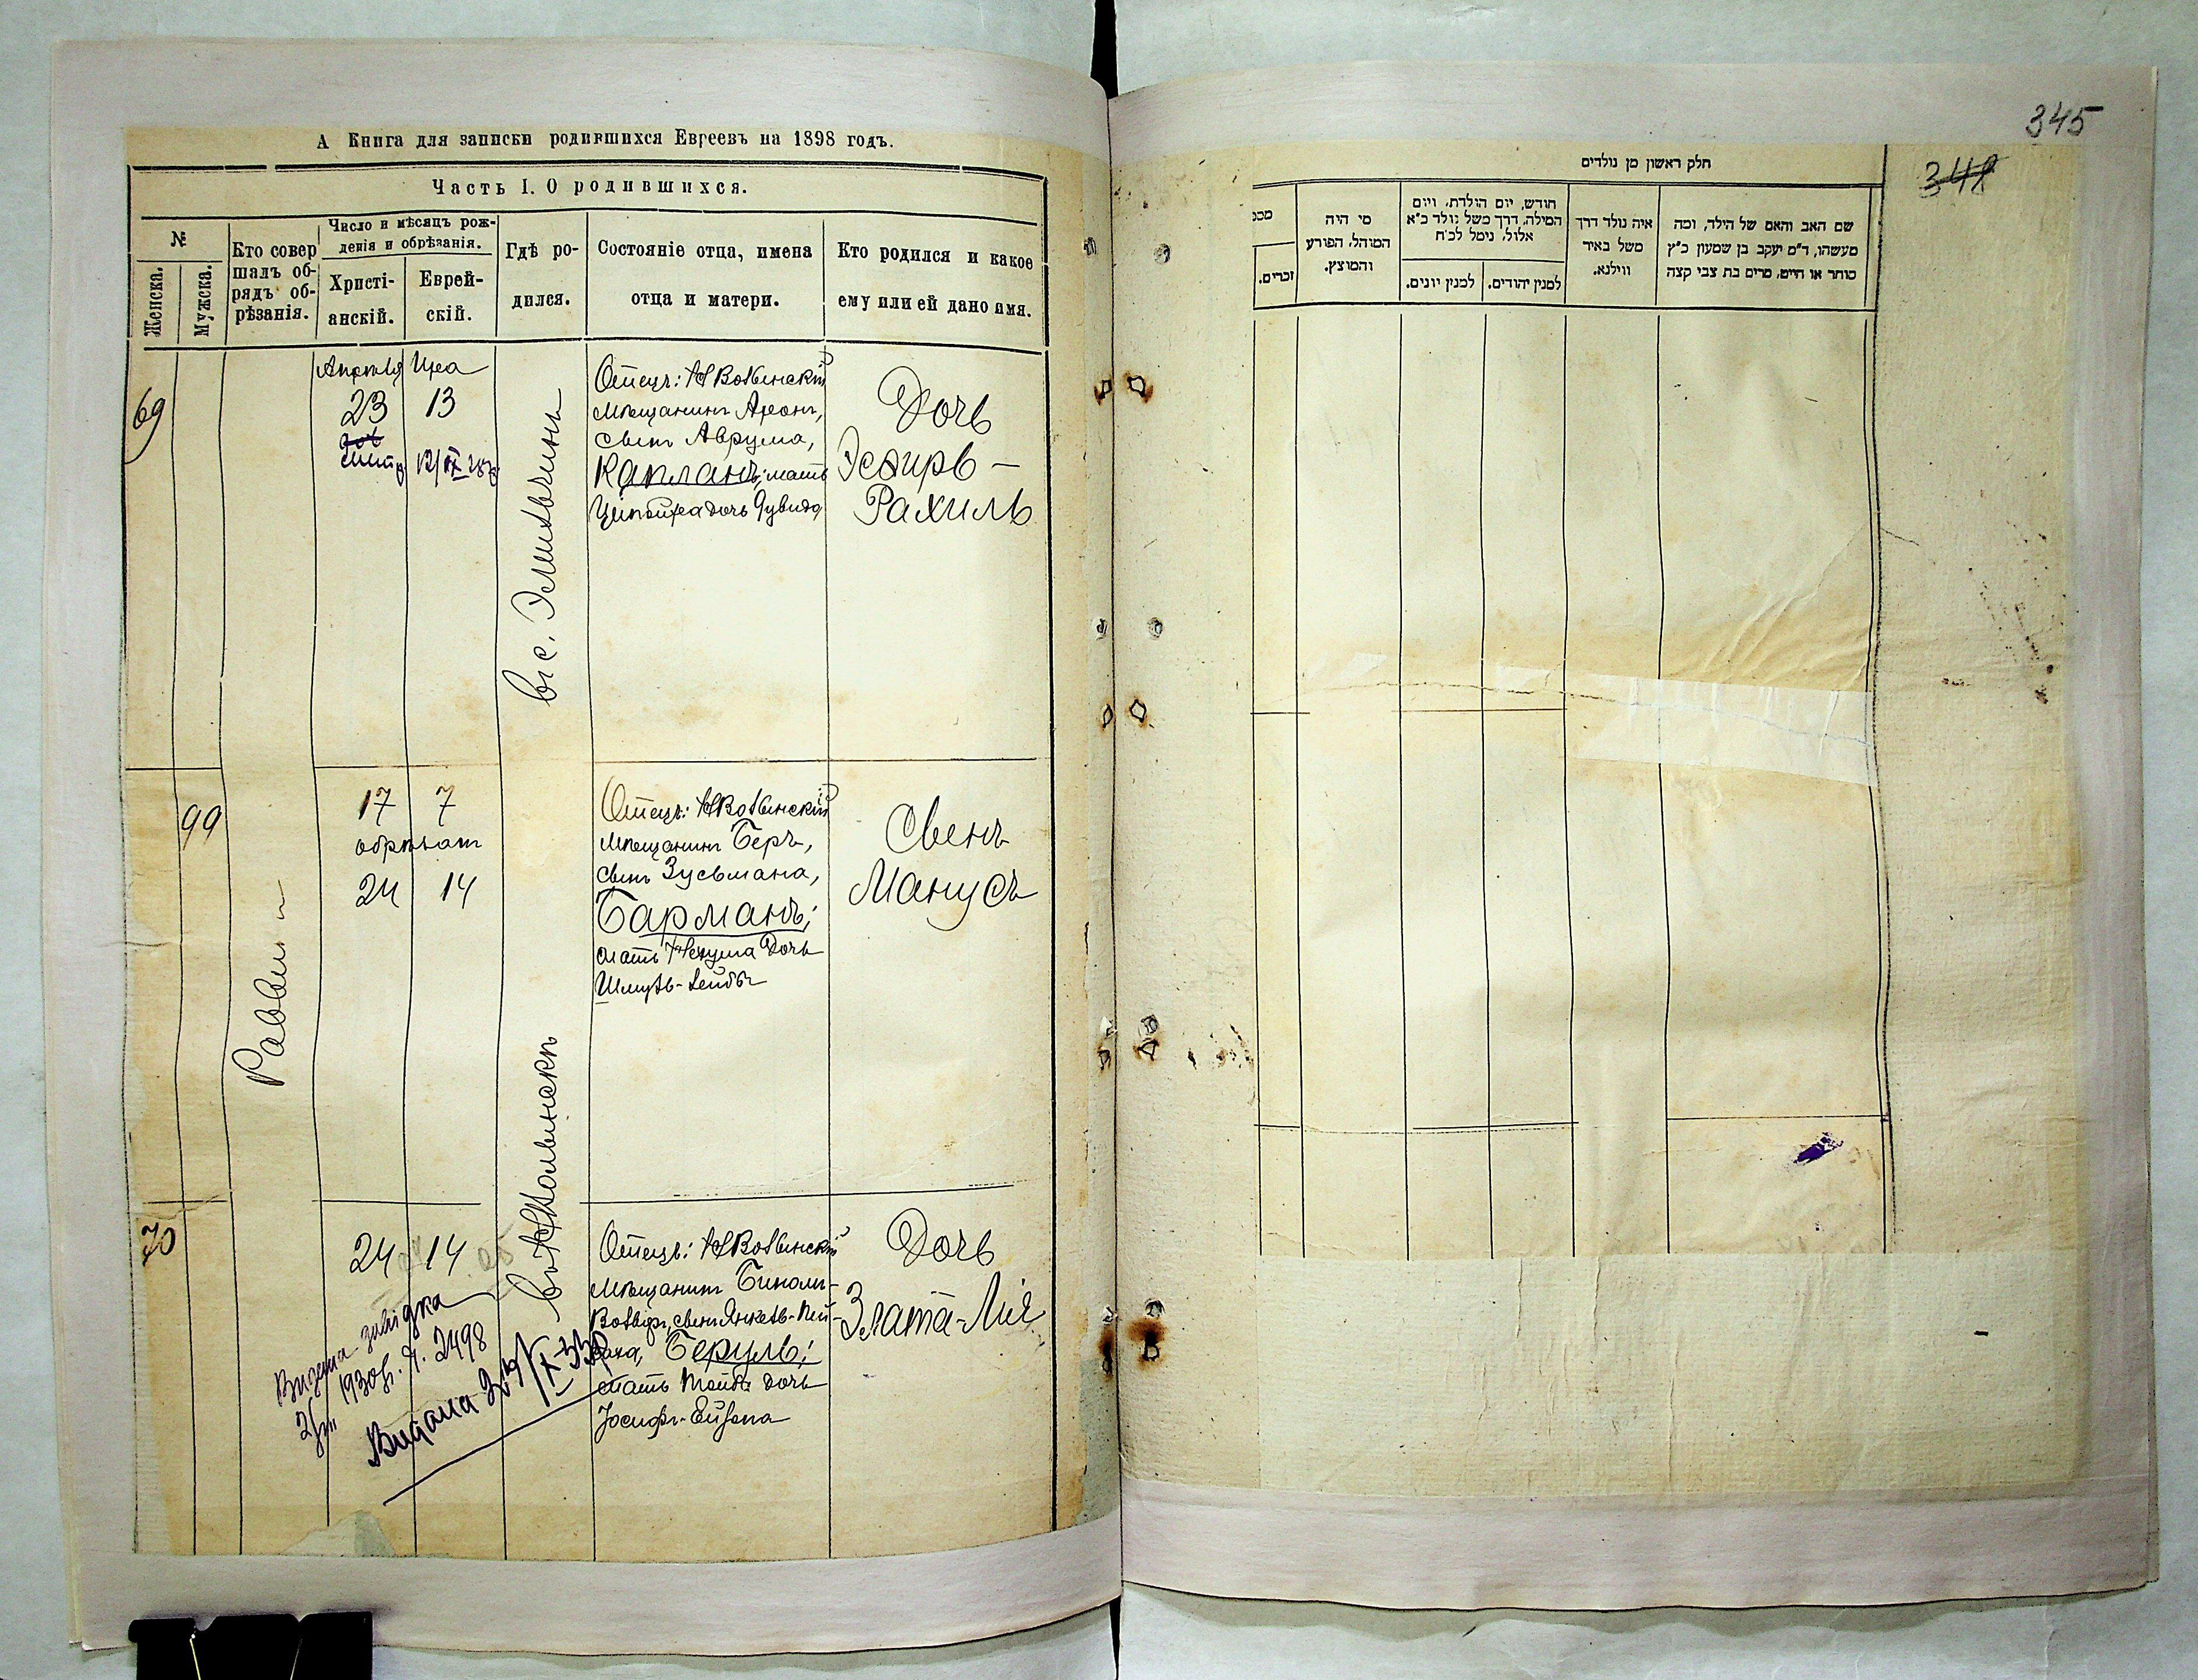 А Книга для записки родившихся Евреевъ на 1898 годъ.
Часть I. О родившихся.
№
Женска.
Мужска.
Кто совер
шалъ об-
рядъ об-
рѣзанія.
Число и мѣсяцъ рож-
денія и обрѣзанія.
Христі-
анскій.
Еврей-
скій.
Гдѣ ро-
дился.
Состояніе отца, имена
отца и матери.
Кто родился и какое
ему или ей дано имя.
69
Апрѣля Иіра
23 13
12/IX 28р
в с. Эмильчинѣ
Отецъ: НВолынскій
мѣщанинъ Аронъ,
сынъ Аврума,
Капланъ; мать
Ципойра дочь Дувида
Дочь
Эсѳирь-
Рахиль
99
Раввинъ
17 7
обрѣзанъ
24 14
Отецъ: НВолынскій
мѣщанинъ Беръ,
сынъ Зусьмана,
Барманъ;
мать Нехума дочь
Шмуль-Лейбы
Сынъ
Манусъ
70
24 14
въ НВолынскѣ
Отецъ: НВолынскій
мѣщанинъ Биномъ-
Вольфъ, сынъ Янкель-Пей-
саха, Беруль;
мать Тойба дочь
Іосифъ-Ейзера
Дочь
Злата-Лія
1930р. Ч. 2498
Видана
345
341
חלק ראשון מן נולדים
שם האב והאם של הילד, ומה
מעשהו, ד"מ יעקב בן שמעון כ"ץ
סוחר או חייט, מרים בת צבי קצה
איה נולד דרך
משל באיר
ווילנא.
חודש, יום הולדת, ויום
המילה, דרך משל נולד כ"א
אלול, נימל לכ"ח
למנין יהודים.
למנין יונים.
מי היה
המוהל, הפורע
והמוצץ.
מספ
זכרים.